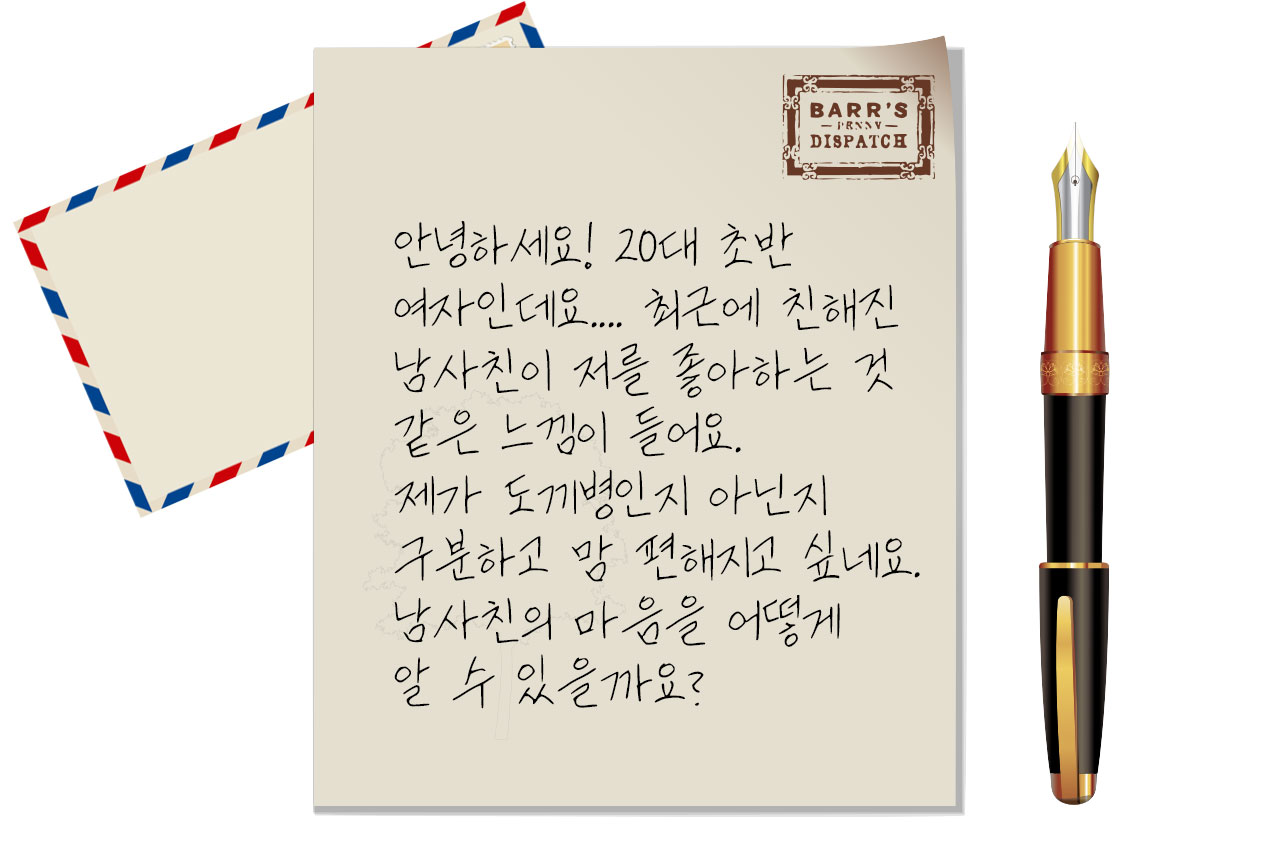 BARR'S
PENNY
DISPATCH
안녕하세요! 20대 초반
여자인데요.... 최근에 친해진
남사친이 저를 좋아하는 것
같은 느낌이 들어요.
제가 도끼병인지 아닌지
구분하고 맘 편해지고 싶네요.
남사친의 마음을 어떻게
알 수 있을까요?